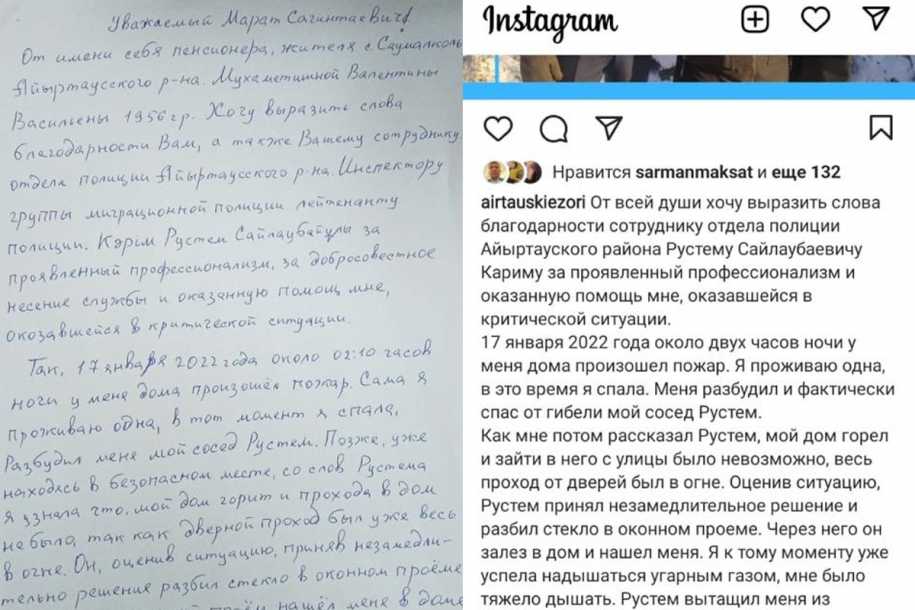 Уважаемый Марат Сагинтаевич!
От имени себя пенсионера, жителя с. Саумалколь
Айыртауского р-на. Мухаметшиной Валентины
Васильены 1956 гр. Хочу выразить слова
благодарности Вам, а также Вашему сотруднику
отдела полиции Айыртауского р-на. Инспектору
группы миграционной полиции лейтенанту
полиции. Кәрім Рустем Сайлаубайұлы за
проявленный профессионализм, за добросовестное
несение службы и оказанную помощ мне,
окозавшейся в критической ситуации.
Так, 17 января 2022 года около 02:10 часов
ночи у меня дома произошёл пожар. Сама я
проживаю одна, в тот момент я спала,
Разбудил меня мой сосед Рустем. Позже, уже
находясь в безопасном месте, со слов Рустема
я узнала что, мой дом горит и прохода в дом
не было, так как дверной проход был уже весь
в огне. Он, оценив ситуацию, приняв незамедли-
тельно решения разбил стекло в оконном проёме
нашёл меня в доме
Instagram
Нравится sarmanmaksat и еще 132
airtauskiezori От всей души хочу выразить слова
благодарности сотруднику отдела полиции
Айыртауского района Рустему Сайлаубаевичу
Кариму за проявленный профессионализм и
оказанную помощь мне, оказавшейся в
критической ситуации.
17 января 2022 года около двух часов ночи у
меня дома произошел пожар. Я проживаю одна,
в это время я спала. Меня разбудил и фактически
спас от гибели мой сосед Рустем.
Как мне потом рассказал Рустем, мой дом горел
и зайти в него с улицы было невозможно, весь
проход от дверей был в огне. Оценив ситуацию,
Рустем принял незамедлительное решение и
разбил стекло в оконном проеме. Через него он
залез в дом и нашел меня. Я к тому моменту уже
успела надышаться угарным газом, мне было
тяжело дышать. Рустем вытащил меня из